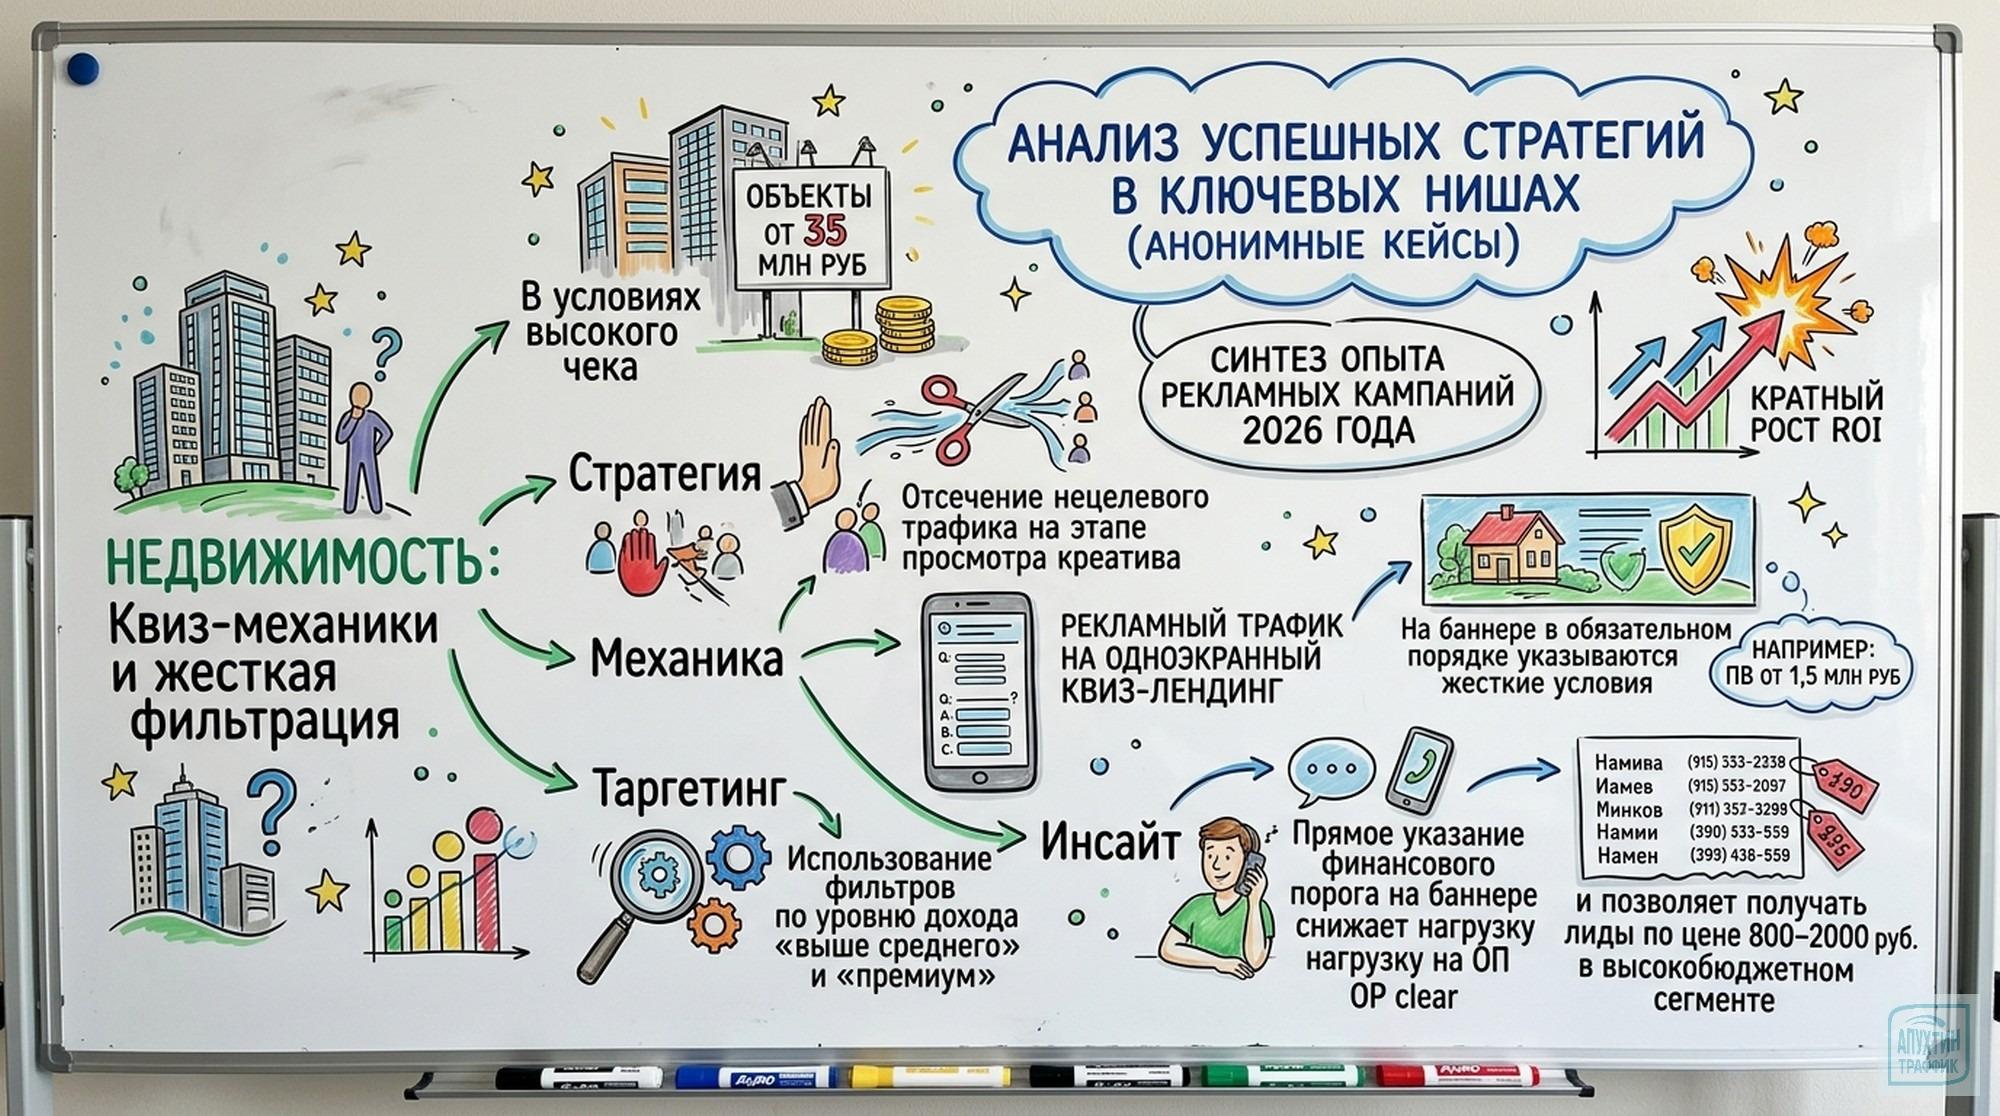 АНАЛИЗ УСПЕШНЫХ СТРАТЕГИЙ
В КЛЮЧЕВЫХ НИШАХ
(АНОНИМНЫЕ КЕЙСЫ)
СИНТЕЗ ОПЫТА
РЕКЛАМНЫХ КАМПАНИЙ
2026 ГОДА
КРАТНЫЙ
РОСТ ROI
ОБЪЕКТЫ
ОТ 35
МЛН РУБ
В условиях
высокого
чека
НЕДВИЖИМОСТЬ:
Квиз-механики
и жесткая
фильтрация
Стратегия
Отсечение нецелевого
трафика на этапе
просмотра креатива
Механика
Q:
Q: ?
A.
B.
C.
РЕКЛАМНЫЙ ТРАФИК
НА ОДНОЭКРАННЫЙ
КВИЗ-ЛЕНДИНГ
На баннере в обязательном
порядке указываются
жесткие условия
НАПРИМЕР:
ПВ ОТ 1,5 МЛН РУБ
Таргетинг
Использование
фильтров
по уровню дохода
«выше среднего»
и «премиум»
Инсайт
Прямое указание
финансового
порога на баннере
снижает нагрузку
нагрузку на ОП
OP clear
Намива (915) 553-2338
Иамев (915) 553-2097
Минков (911) 357-3298
Намии (390) 533-559
Намен (393) 438-559
и позволяет получать
лиды по цене 800–2000 руб.
в высокобюджетном
сегменте
АПУХТИН
ТРАФФИК